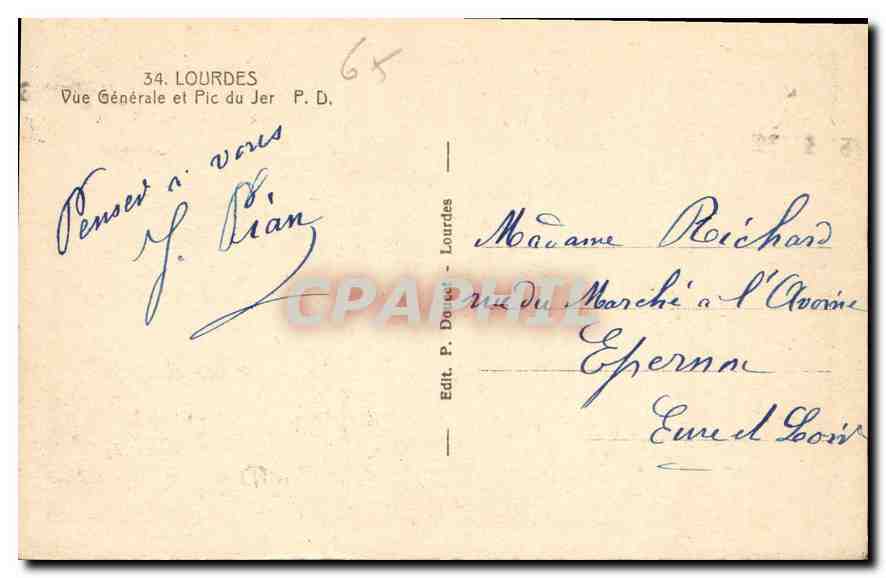 34. LOURDES
Vue Générale et Pic du Jer P. D.
65
Penser à vous
J. Pian
Edit. P. Doucet - Lourdes
CPAPHIL
Madame Richard
rue du Marché à l'Avoine
Epernon
Eure et Loir